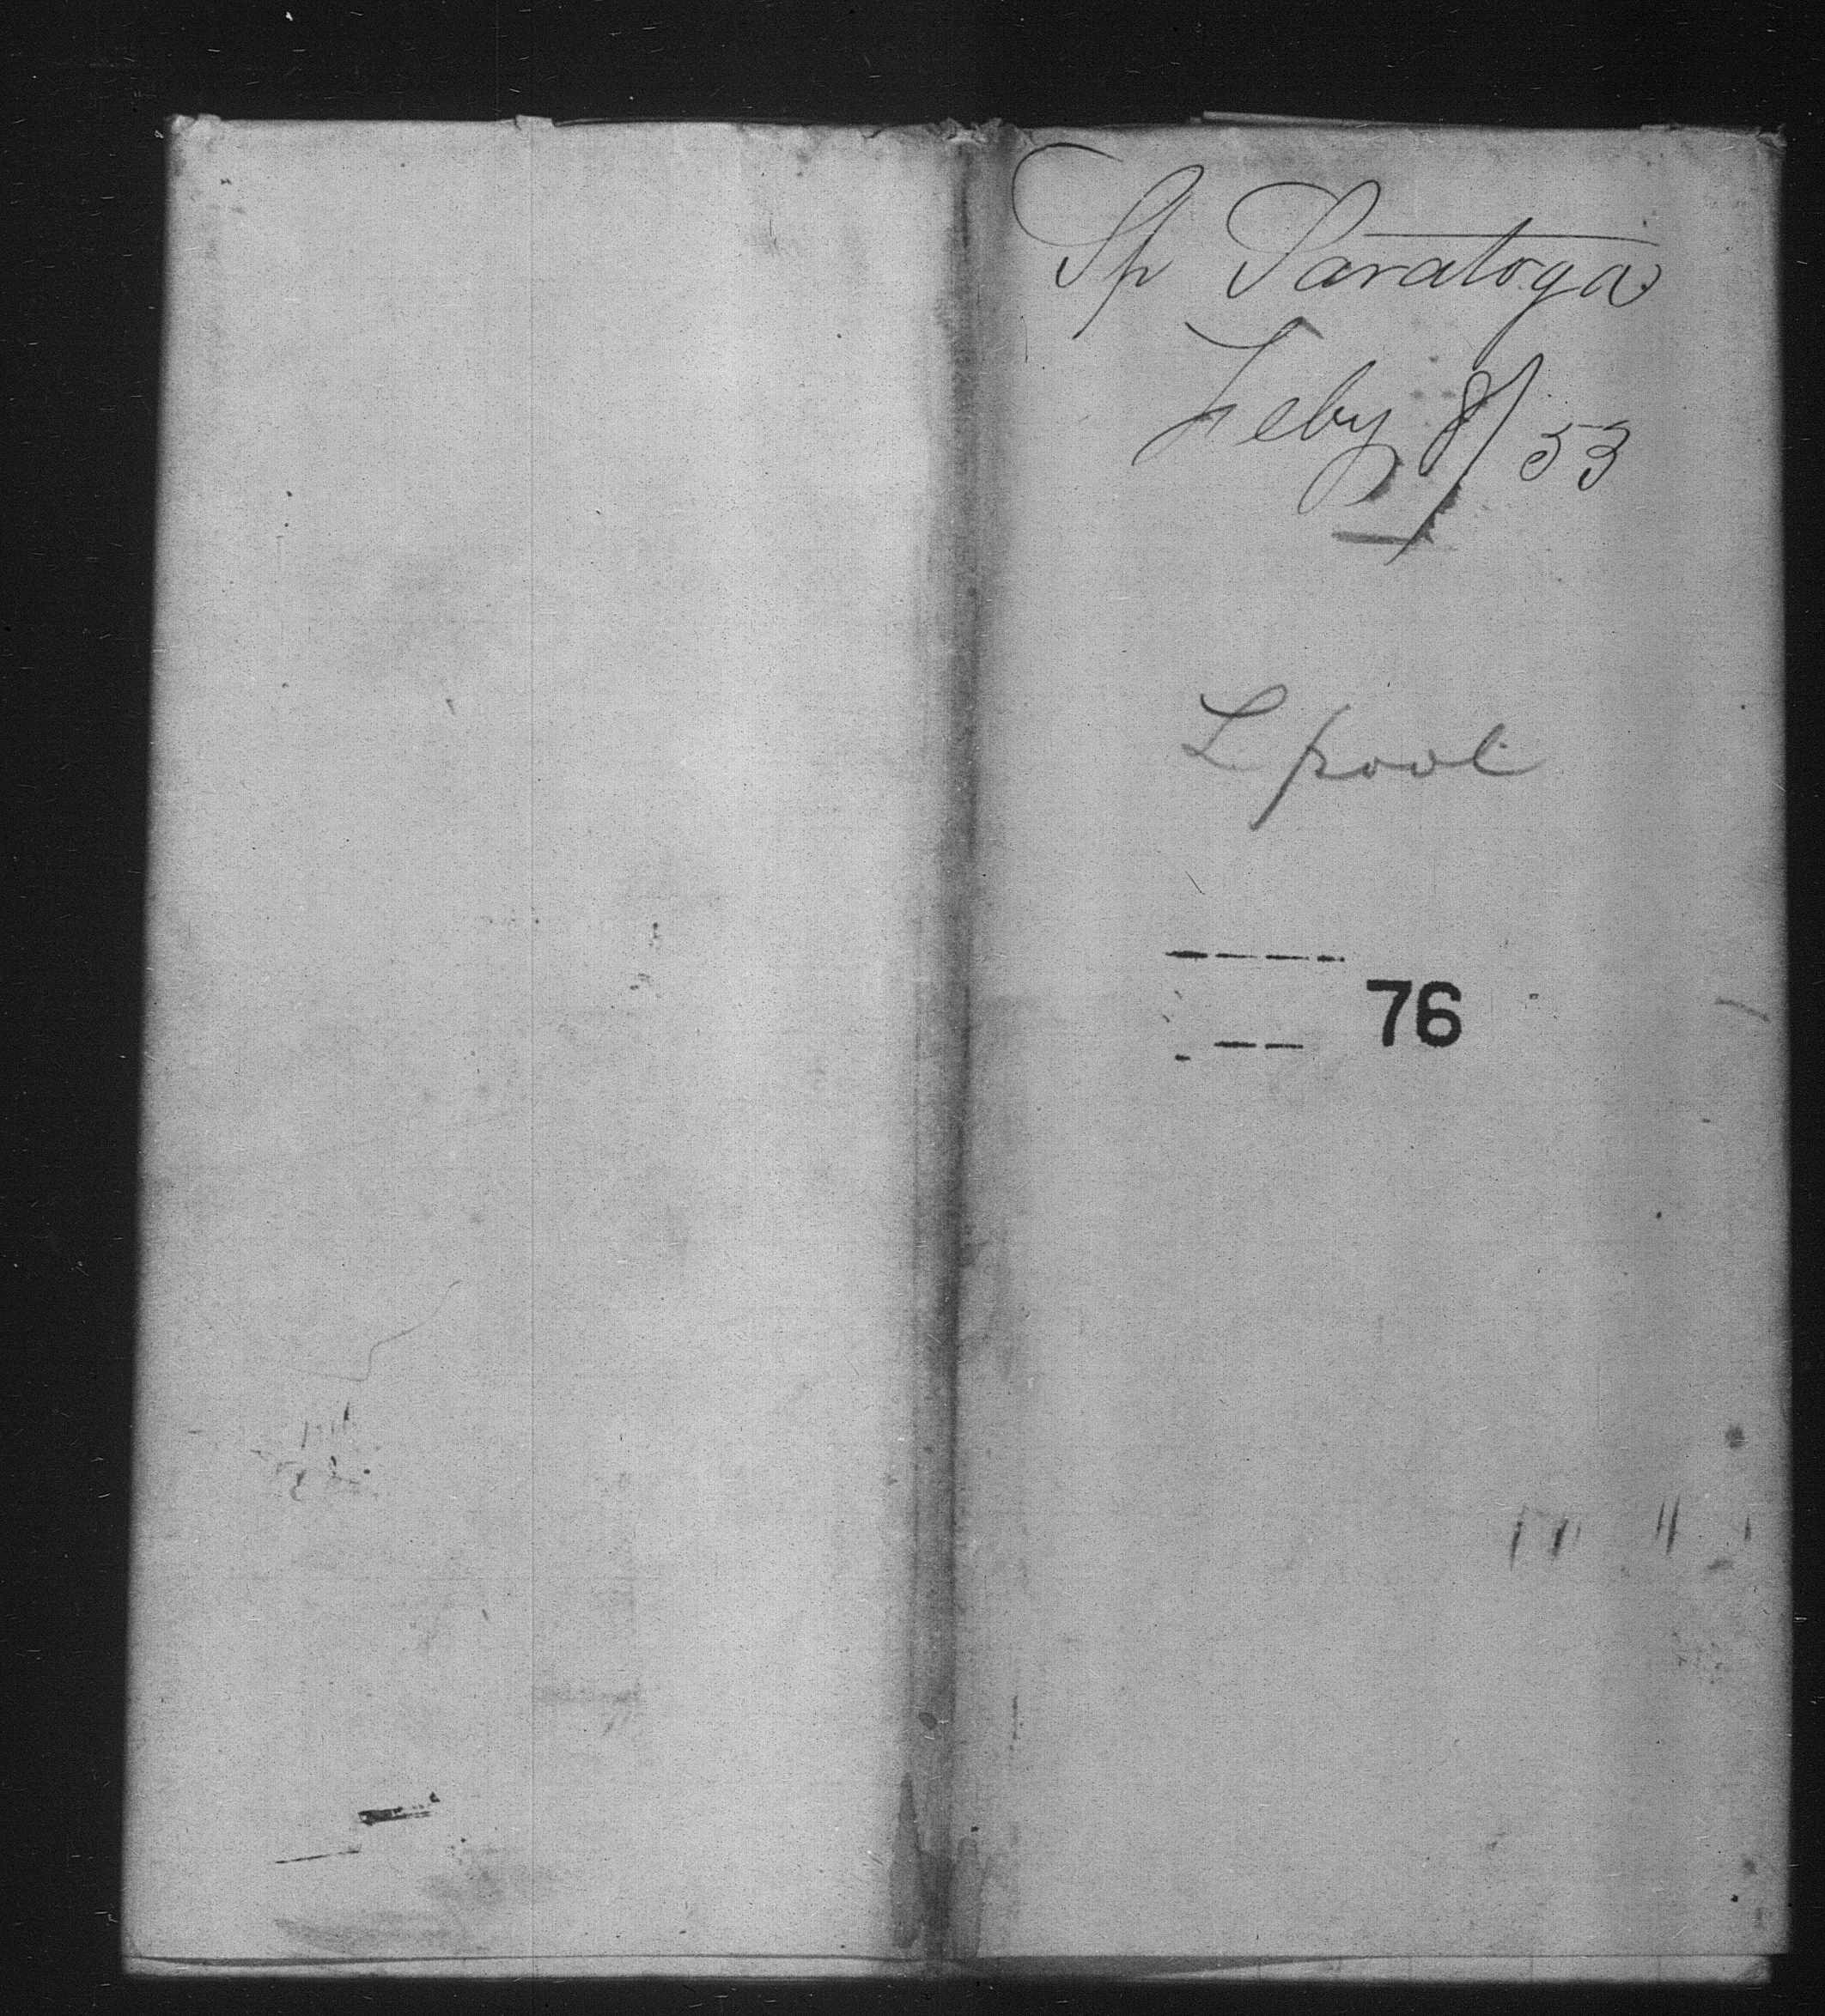 Sh Saratoga
Feby 8/53
L pool
76